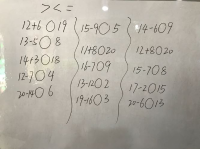 > < =
12+6○19
13-5○8
14+3○18
12-7○4
20-14○6
15-9○5
11+8○20
16-7○9
13-12○2
19-16○3
14-6○9
12+8○20
15-7○8
17-2○15
20-6○13